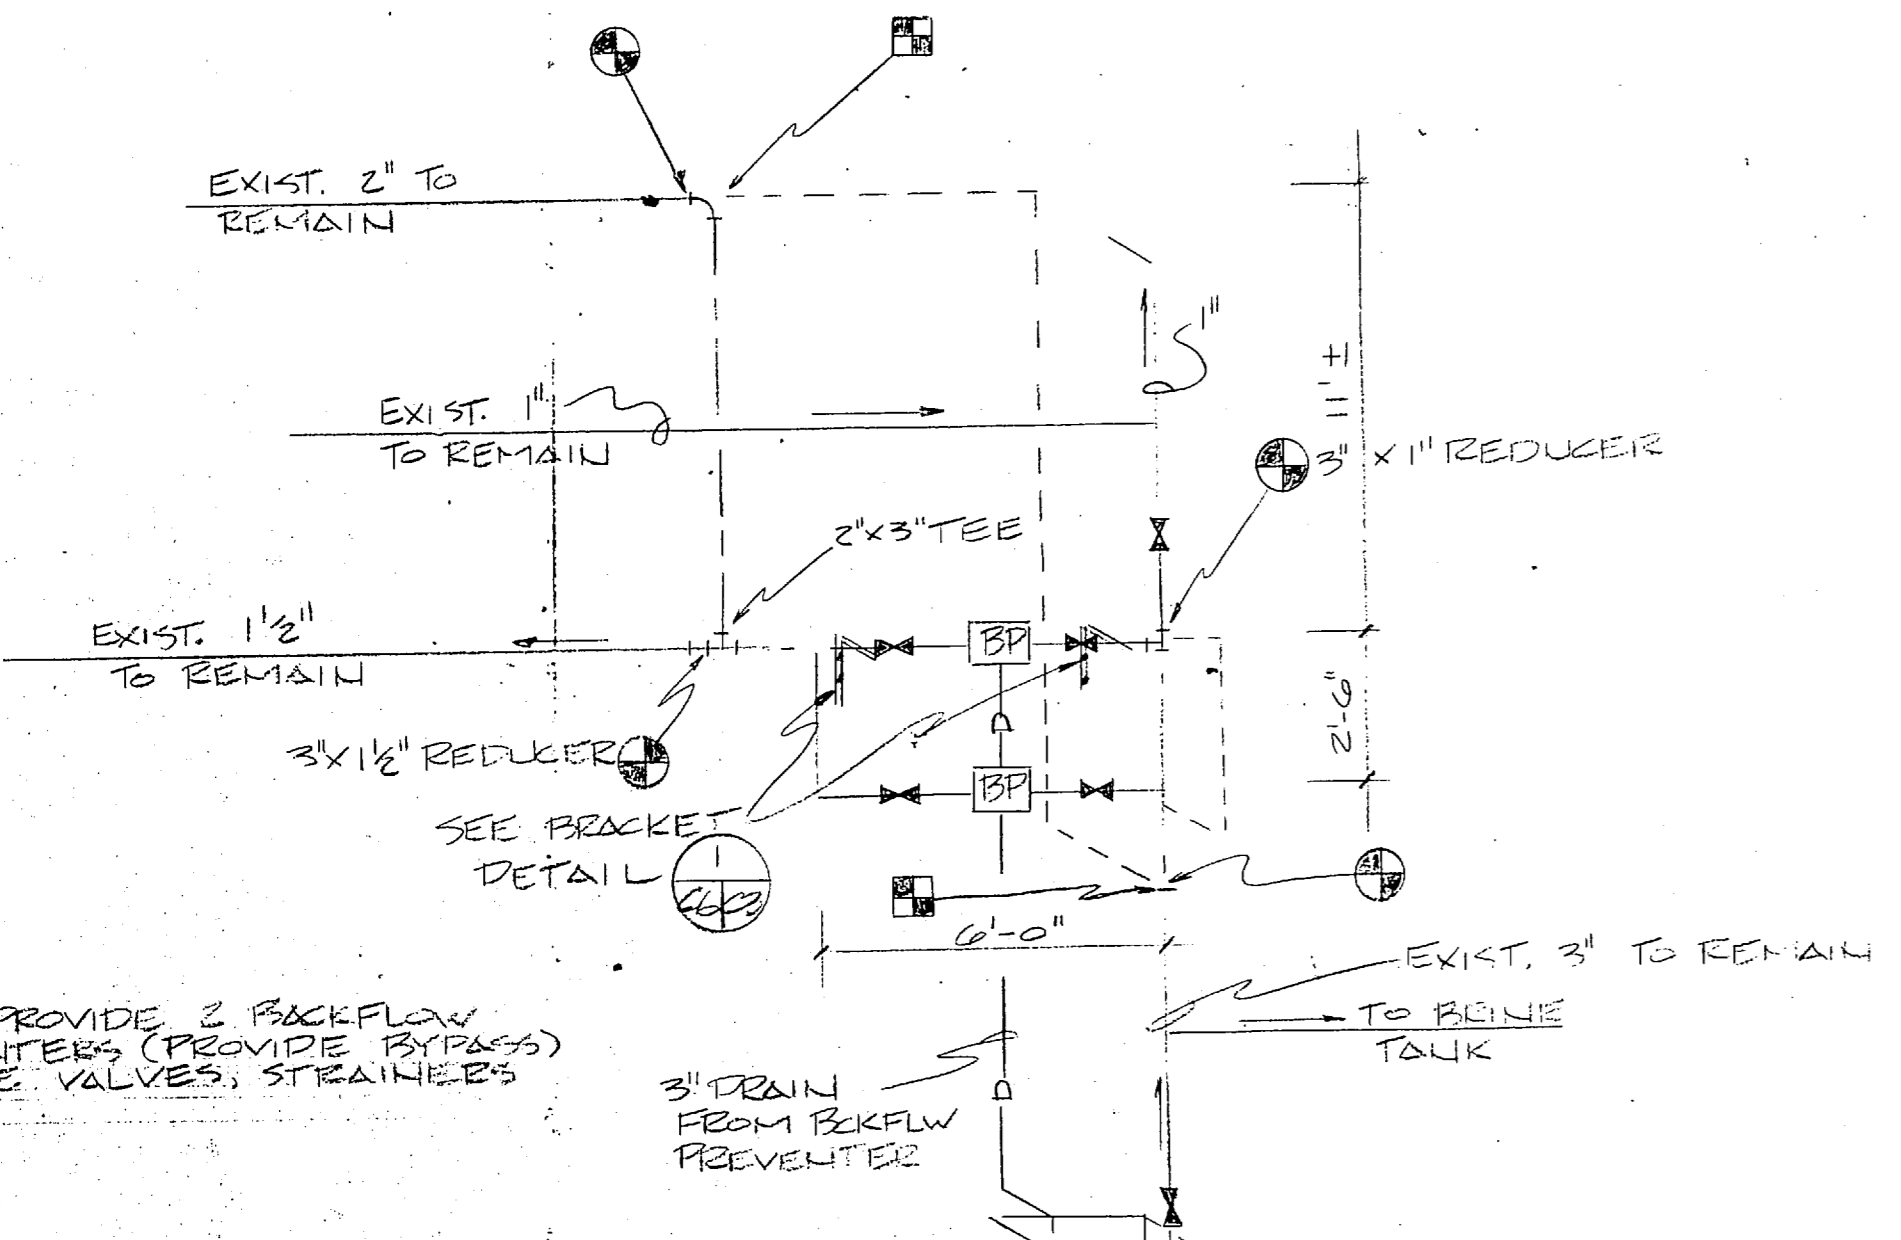 EXIST. 2" TO
REMAIN
1"
EXIST. 1"
TO REMAIN
11' ±
3" X 1" REDUCER
2"X3" TEE
EXIST. 1 1/2"
TO REMAIN
BP
2'-6"
D
3"X1 1/2" REDUCER
BP
SEE BRACKET
DETAIL
6'-0"
EXIST. 3" TO REMAIN
TO BRINE
TANK
PROVIDE 2 BACKFLOW
NTERS (PROVIDE BYPASS)
E VALVES, STRAINERS
3" DRAIN
FROM BCKFLW
PREVENTER
D